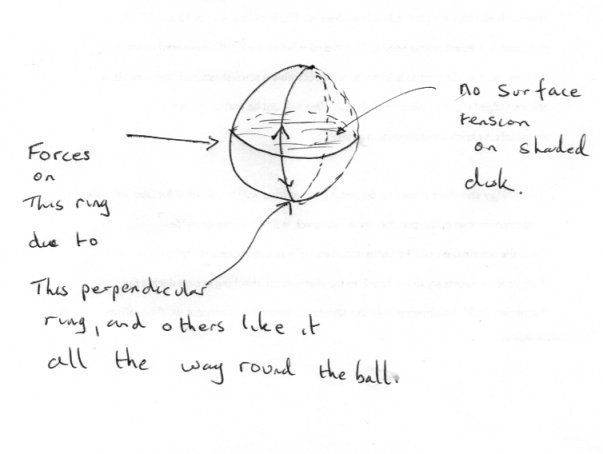 no surface
tension
on shaded
disk.
Forces
on
This ring
due to
This perpendicular
ring, and others like it
all the way round the ball.